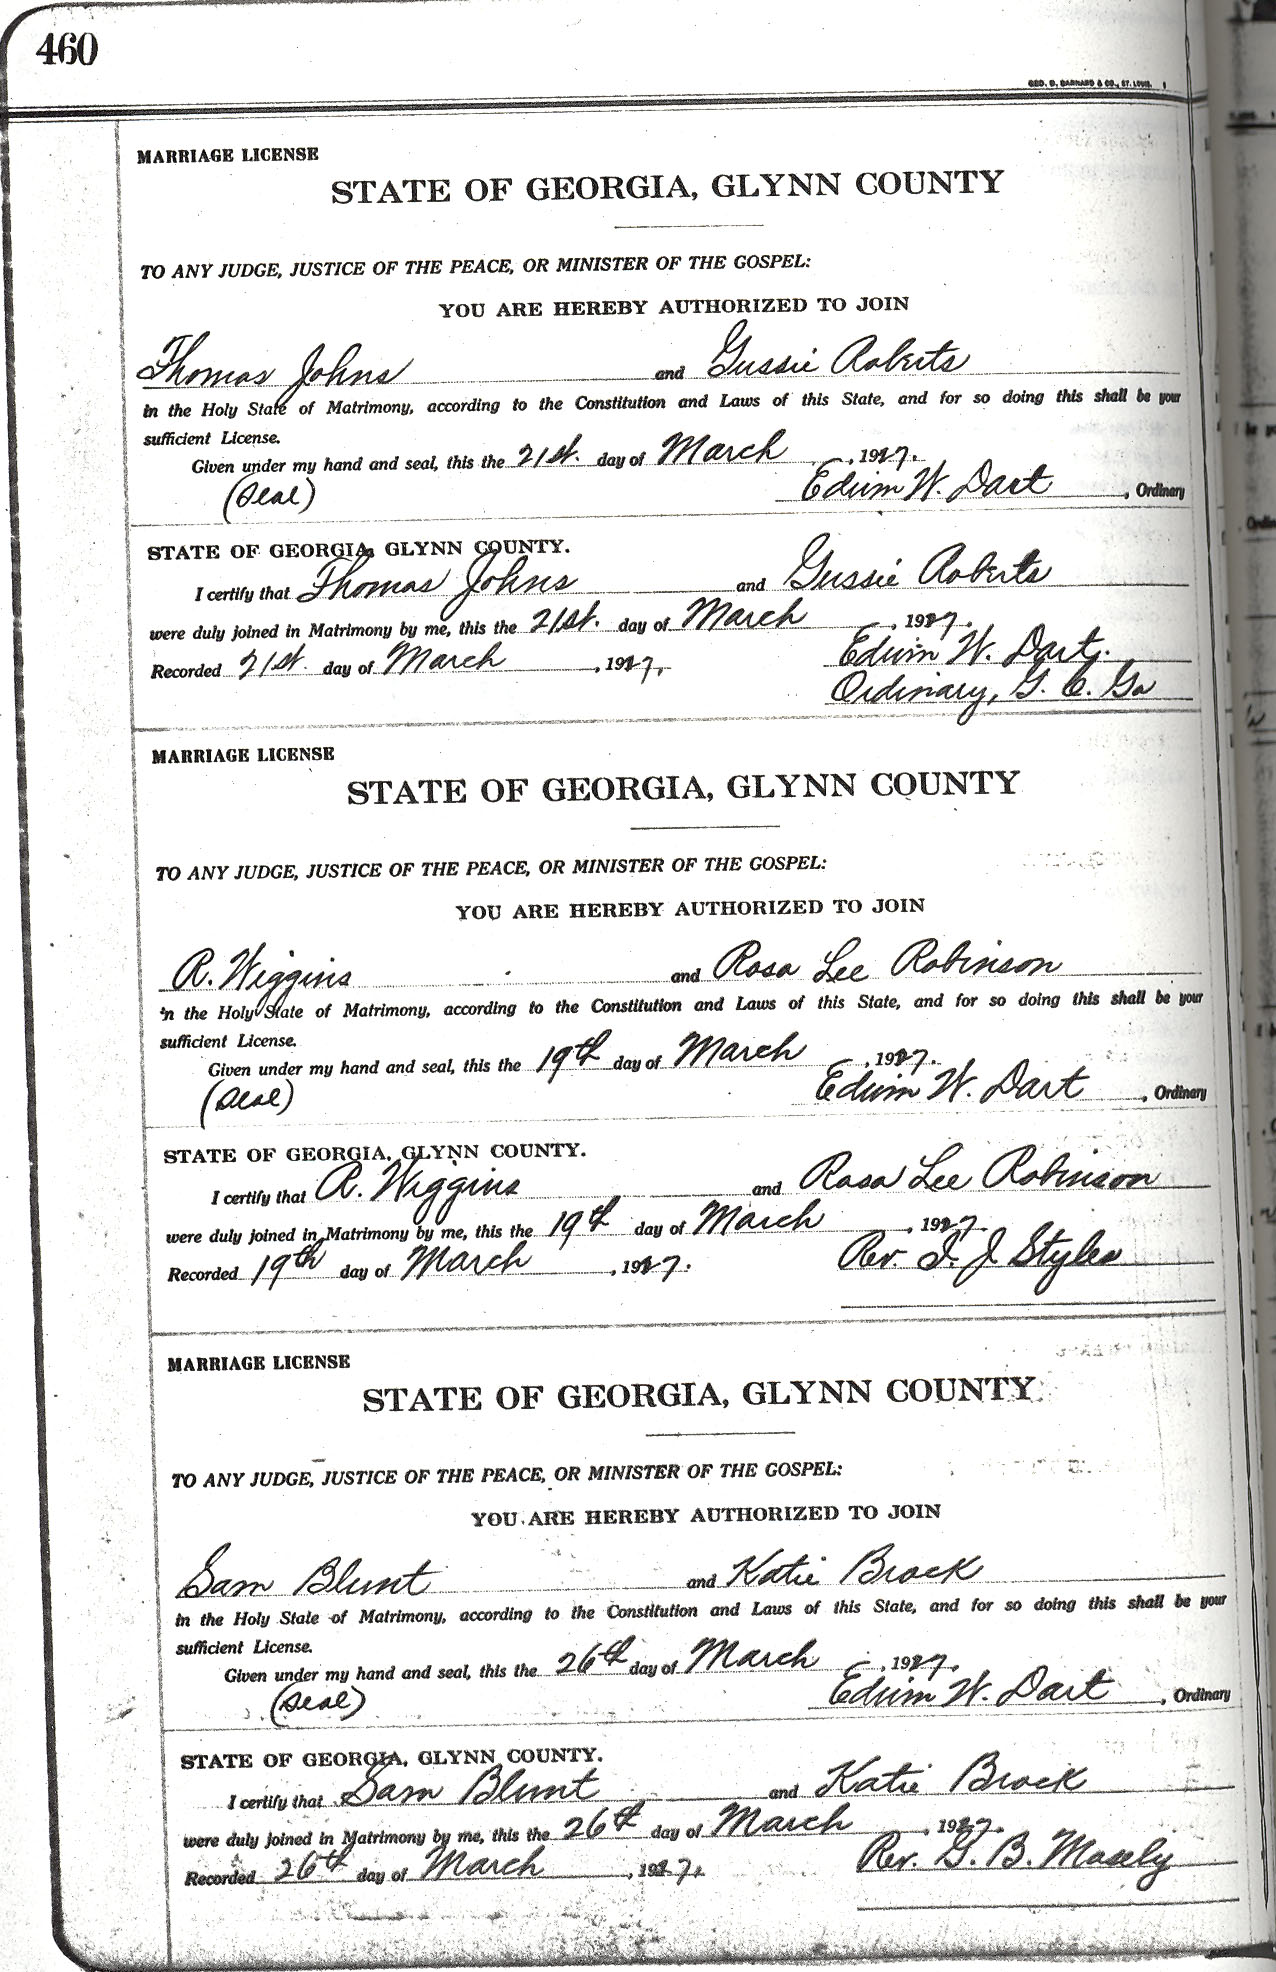 460
GEO. D. BARNARD & CO., ST. LOUIS.
MARRIAGE LICENSE
STATE OF GEORGIA, GLYNN COUNTY
TO ANY JUDGE, JUSTICE OF THE PEACE, OR MINISTER OF THE GOSPEL:
YOU ARE HEREBY AUTHORIZED TO JOIN
Thomas Johns and Gussie Roberts
in the Holy State of Matrimony, according to the Constitution and Laws of this State, and for so doing this shall be your
sufficient License.
Given under my hand and seal, this the 21st. day of March, 1927.
(Seal) Edwin W. Dart, Ordinary
STATE OF GEORGIA, GLYNN COUNTY.
I certify that Thomas Johns and Gussie Roberts
were duly joined in Matrimony by me, this the 21st. day of March, 1927.
Recorded 21st. day of March, 1927. Edwin W. Dart.
Ordinary, G. C. Ga
MARRIAGE LICENSE
STATE OF GEORGIA, GLYNN COUNTY
TO ANY JUDGE, JUSTICE OF THE PEACE, OR MINISTER OF THE GOSPEL:
YOU ARE HEREBY AUTHORIZED TO JOIN
R. Wiggins and Rosa Lee Robinson
in the Holy State of Matrimony, according to the Constitution and Laws of this State, and for so doing this shall be your
sufficient License.
Given under my hand and seal, this the 19th day of March, 1927.
(Seal) Edwin W. Dart, Ordinary
STATE OF GEORGIA, GLYNN COUNTY.
I certify that R. Wiggins and Rosa Lee Robinson
were duly joined in Matrimony by me, this the 19th day of March, 1927.
Recorded 19th day of March, 1927. Rev. I. J. Styles
MARRIAGE LICENSE
STATE OF GEORGIA, GLYNN COUNTY
TO ANY JUDGE, JUSTICE OF THE PEACE, OR MINISTER OF THE GOSPEL:
YOU ARE HEREBY AUTHORIZED TO JOIN
Sam Blunt and Katie Brock
in the Holy State of Matrimony, according to the Constitution and Laws of this State, and for so doing this shall be your
sufficient License.
Given under my hand and seal, this the 26th day of March, 1927.
(Seal) Edwin W. Dart, Ordinary
STATE OF GEORGIA, GLYNN COUNTY.
I certify that Sam Blunt and Katie Brock
were duly joined in Matrimony by me, this the 26th day of March, 1927.
Recorded 26th day of March, 1927. Rev. G. B. Mosely